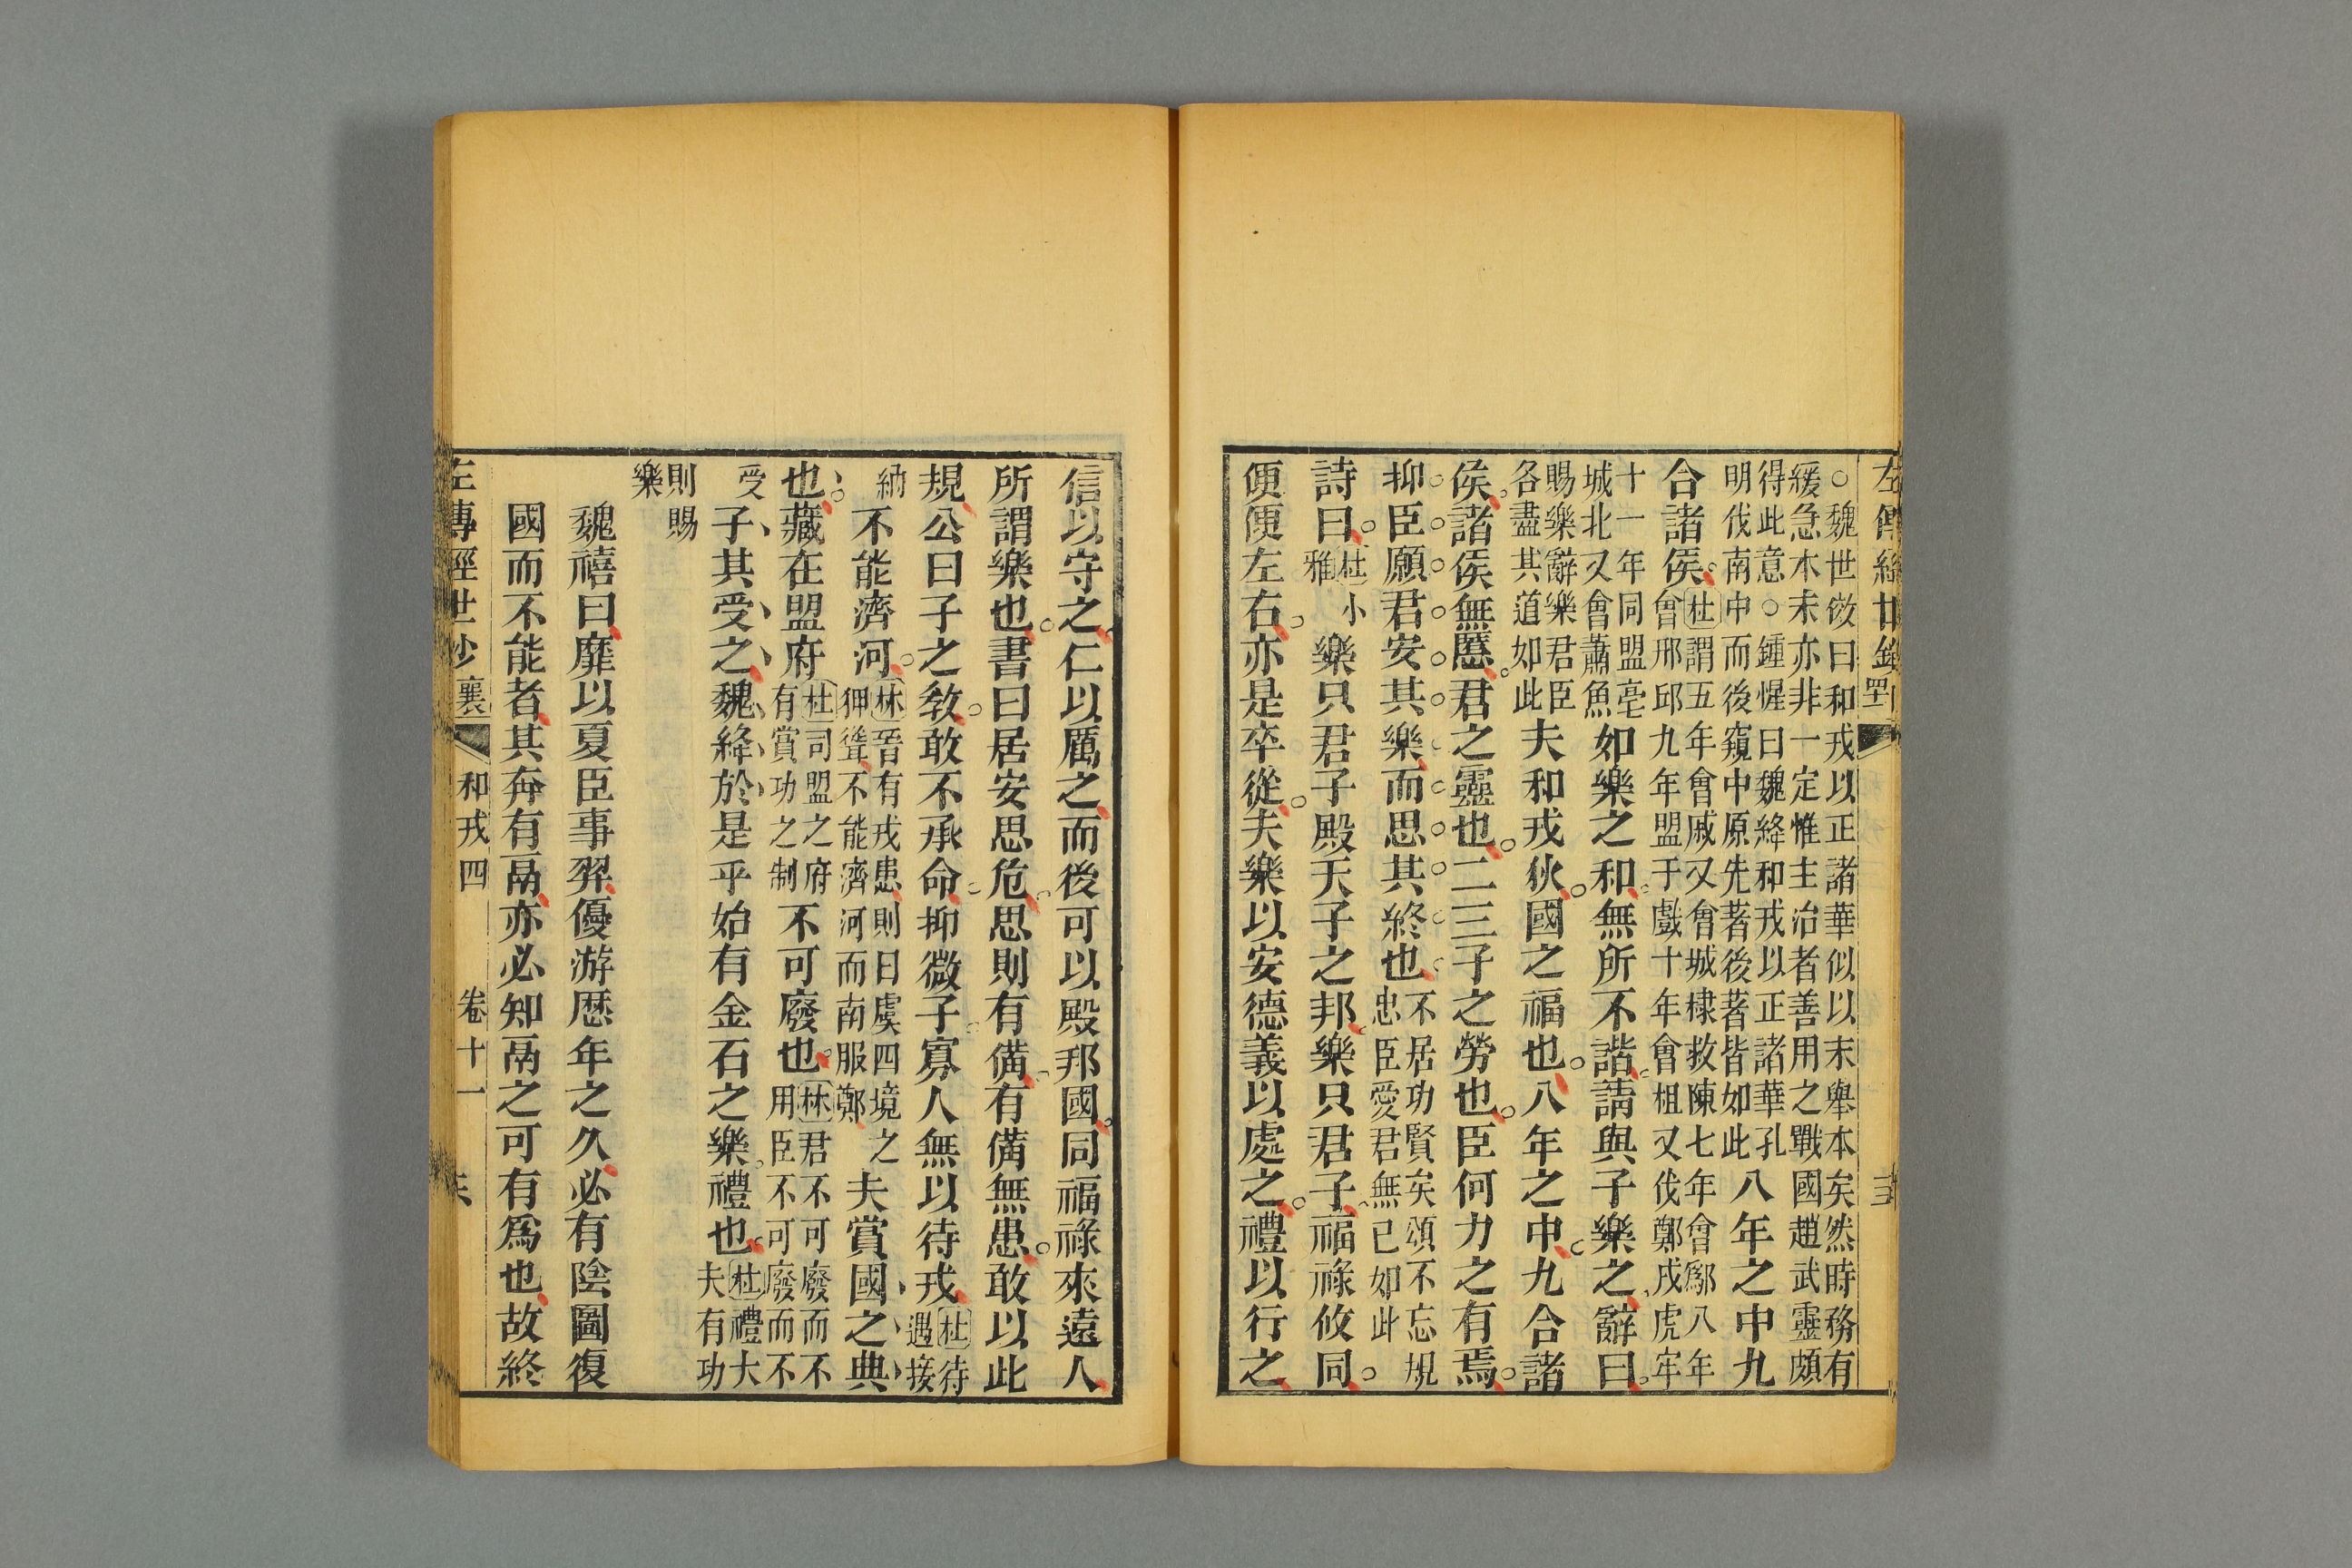 ○魏世傚曰和戎以正諸華似以末舉本矣然時務有
緩急本末亦非一定惟主治者善用之戰國趙武靈頗
得此意○鍾惺曰魏絳和戎以正諸華孔
明伐南中而後窺中原先著後著皆如此八年之中九
合諸侯杜謂五年會戚又會城棣救陳七年會鄬八年
會邢邱九年盟于戲十年會柤又伐鄭戍虎牢
十一年同盟亳
城北又會蕭魚如樂之和無所不諧請與子樂之辭曰
賜樂辭樂君臣
各盡其道如此夫和戎狄國之福也八年之中九合諸
侯諸侯無慝君之靈也二三子之勞也臣何力之有焉
抑臣願君安其樂而思其終也不居功賢矣頌不忘規
忠臣愛君無已如此
詩曰杜小
雅樂只君子殿天子之邦樂只君子福祿攸同
便便左右亦是卒從夫樂以安德義以處之禮以行之
信以守之仁以厲之而後可以殿邦國同福祿來遠人
所謂樂也書曰居安思危思則有備有備無患敢以此
規公曰子之敎敢不承命抑微子寡人無以待戎杜待
遇接
納不能濟河林晉有戎患則日虞四境之
狎聳不能濟河而南服鄭夫賞國之典
也藏在盟府杜司盟之府
有賞功之制不可廢也林君不可廢而不
用臣不可廢而不
受子其受之魏絳於是乎始有金石之樂禮也杜禮大
夫有功
則賜
樂
魏禧曰靡以夏臣事羿優游歷年之久必有陰圖復
國而不能者其奔有鬲亦必知鬲之可有爲也故終
左傳經世鈔 襄 和戎四 卷十一